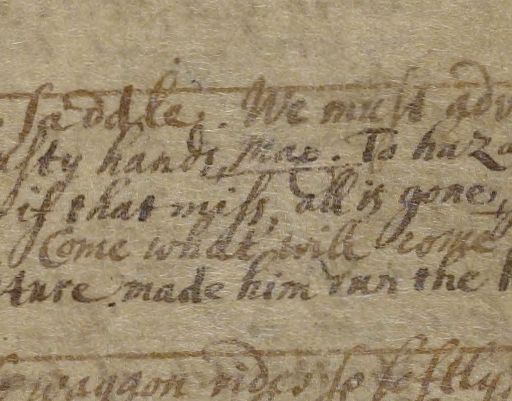 saddle. We must adv
usty hands, Mae. To haz
if that miss, all is gone,
Come what will come
ture made him run the
waggon rides so softly